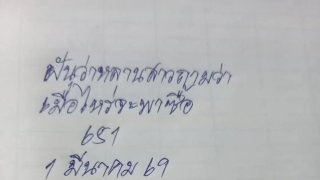 ฝันว่าหลานสาวถามว่า
เมื่อไหร่จะพาซื้อ
651
1 มีนาคม 69